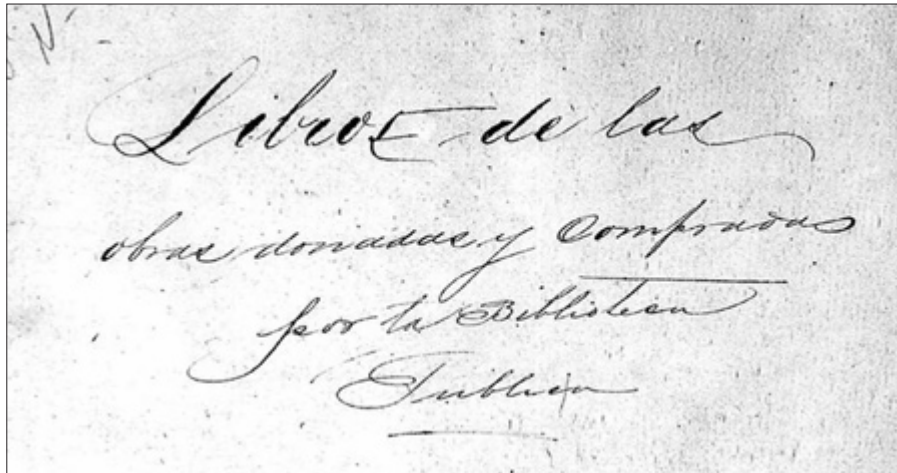 Libros de las
obras donadas y Compradas
por la Biblioteca
Publica